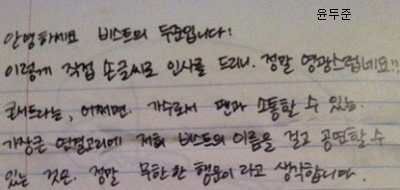 윤두준
안녕하세요 비스트의 두준입니다!
이렇게 직접 손글씨로 인사를 드리니. 정말 영광스럽네요!!
콘서트라는, 어쩌면. 가수로서 팬과 소통할 수 있는.
가장큰 연결고리에 저희 비스트의 이름을 걸고 공연할 수
있는 것은. 정말 무한한 행운이라고 생각합니다.